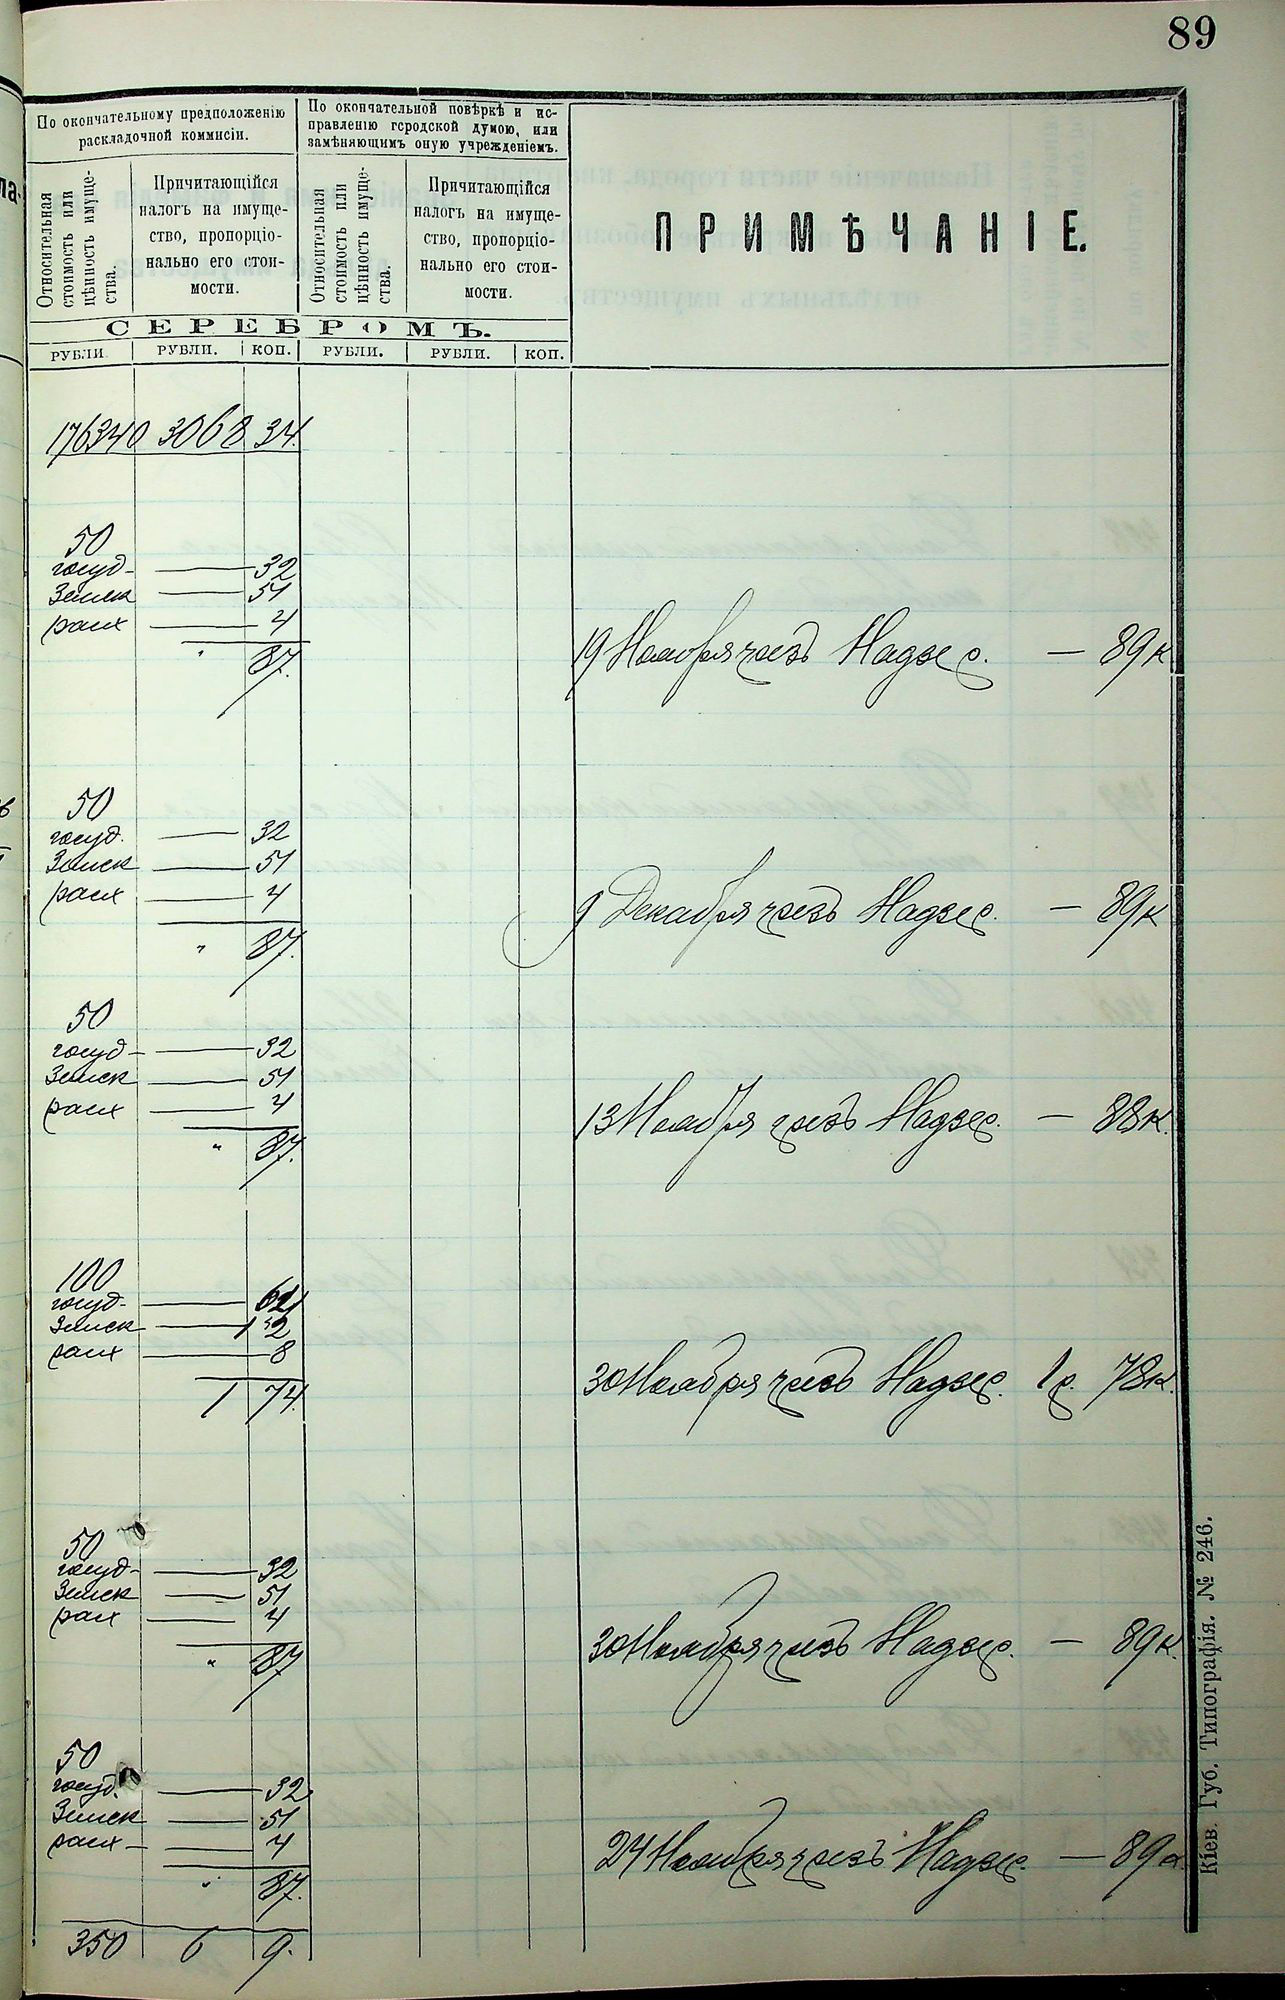 89
По окончательному предположенію
раскладочной коммисіи.
По окончательной повѣркѣ и ис-
правленію городской думою, или
замѣняющимъ оную учрежденіемъ.
Относительная
стоимость или
цѣнность имуще-
ства.
Причитающійся
налогъ на имуще-
ство, пропорціо-
нально его стои-
мости.
Относительная
стоимость или
цѣнность имуще-
ства.
Причитающійся
налогъ на имуще-
ство, пропорціо-
нально его стои-
мости.
ПРИМѢЧАНІЕ.
СЕРЕБРОМЪ.
РУБЛИ. РУБЛИ. КОП. РУБЛИ. РУБЛИ. КОП.
176340 3068 34.
50
госуд — 32
Земск — 51
расх — 4
" 87.
19 Ноября чрезъ Надзер. — 89 к
50
госуд. — 32
Земск — 51
расх — 4
" 87.
9 Декабря чрезъ Надзер. — 89 к
50
госуд — 32
Земск — 51
расх — 4
" 87.
13 Ноября чрезъ Надзер. — 88 к.
100
госуд. — 64
Земск — 1 2
расх — 8
1 74.
30 Ноября чрезъ Надзер. 1 р. 78 к.
50
госуд — 32
Земск — 51
расх — 4
" 87
30 Ноября чрезъ Надзер. — 89 к.
50
госуд. — 32
Земск — 51
расх — 4
" 87.
24 Ноября чрезъ Надзер. — 89 к
350 6 9.
Кіев. Губ. Типографія. № 246.